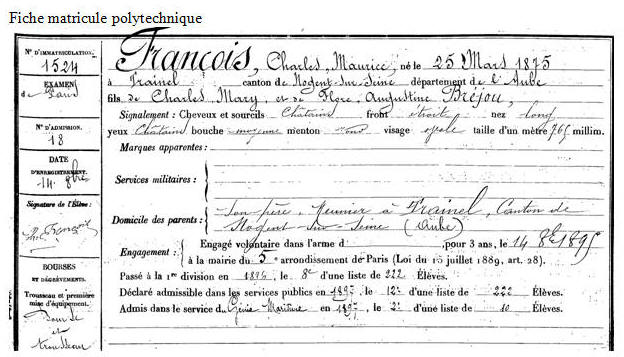 Fiche matricule polytechnique
N° D'IMMATRICULATION.
1524
EXAMEN
de Paris
N° D'ADMISSION.
18
DATE
D'ENREGISTREMENT.
14 8bre
Signature de l'Élève:
François
BOURSES
ET DÉGRÈVEMENTS.
Trousseau et première
mise d'équipement.
Bourse
et
trousseau
François, Charles, Maurice, né le 25 Mars 1875
à Trainel canton de Nogent-sur-Seine département de l'Aube
fils de Charles Mary, et de Flore, Augustine Bréjou,
Signalement : Cheveux et sourcils Châtain front étroit nez long
yeux Châtain bouche moyenne menton rond visage ovale taille d'un mètre 765 millim.
Marques apparentes :
Services militaires :
Domicile des parents : Son père, Meunier à Trainel, Canton de
Nogent-sur-Seine (Aube)
Engagement : Engagé volontaire dans l'arme d , pour 3 ans, le 14 8bre 1895
à la mairie du 5e arrondissement de Paris (Loi du 15 juillet 1889, art. 28).
Passé à la 1re division en 1896, le 8e d'une liste de 222 Élèves.
Déclaré admissible dans les services publics en 1897, le 12e d'une liste de 222 Élèves.
Admis dans le service du Génie Maritime en 1897, le 2e d'une liste de 10 Élèves.